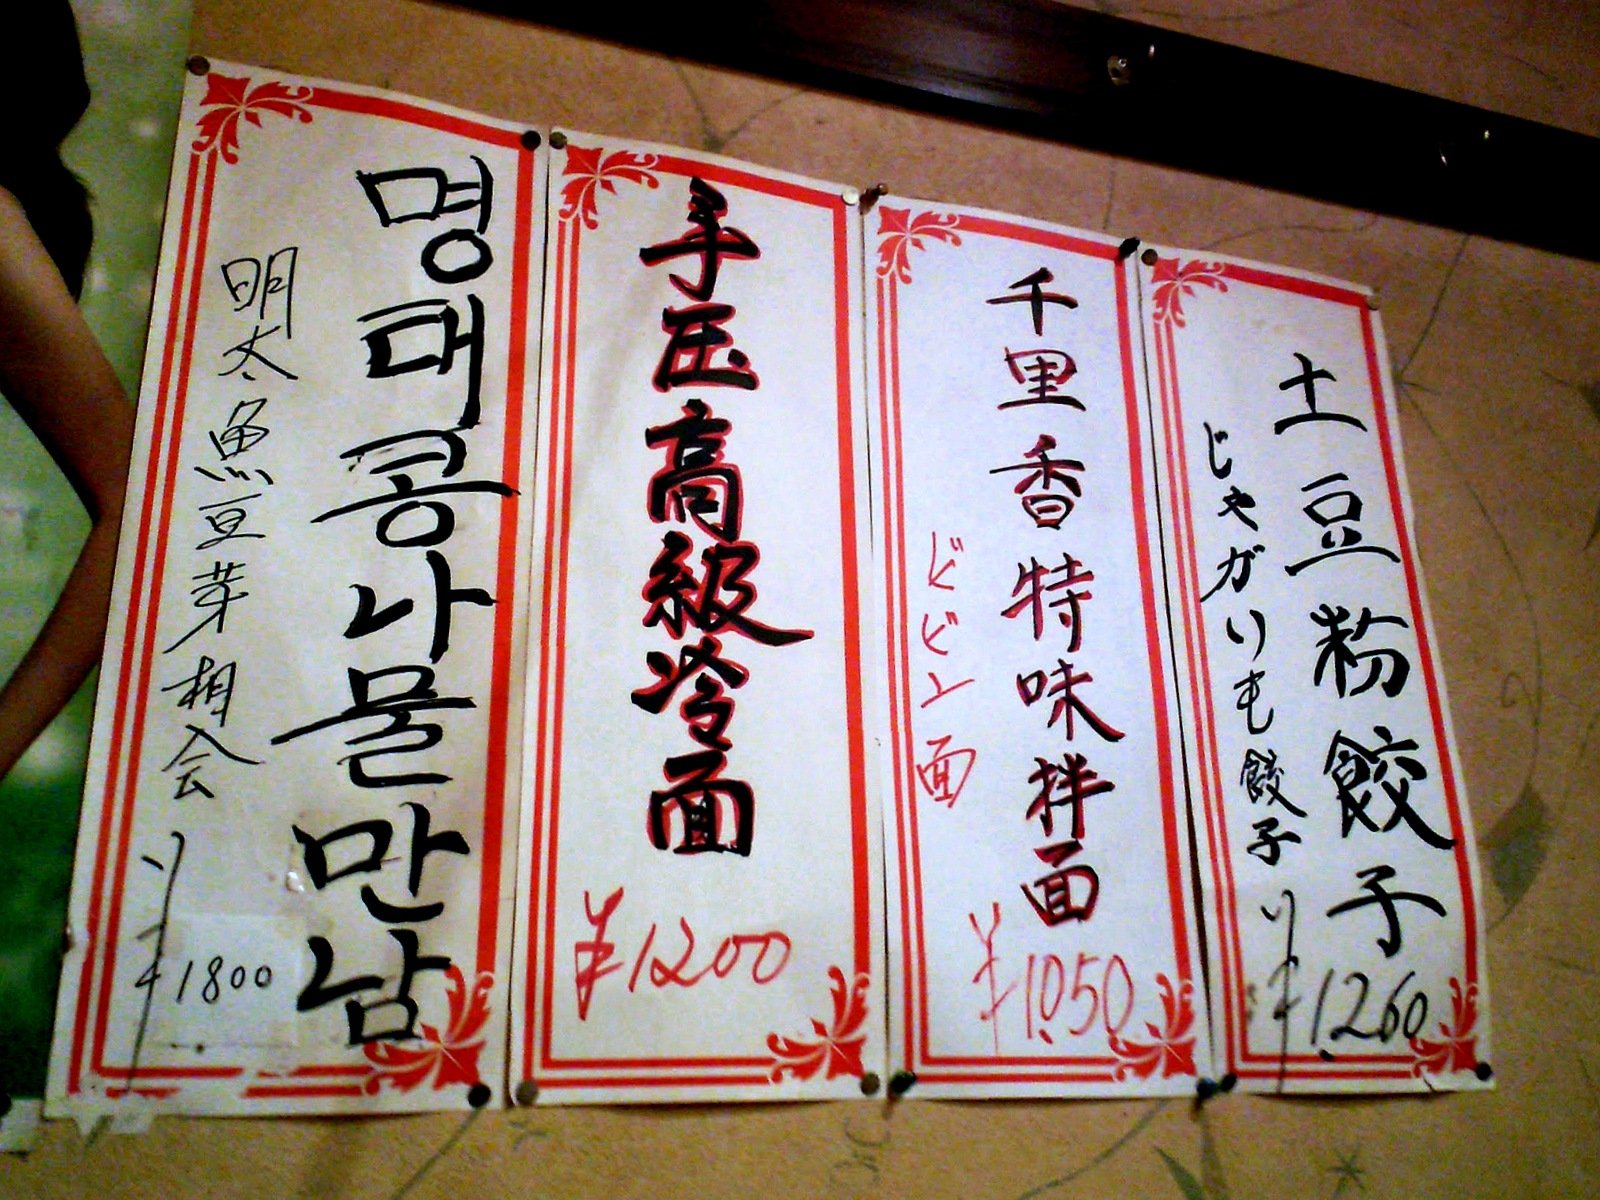 명태콩나물만남
明太魚豆芽相会
¥1800
手压高級冷面
¥1200
千里香特味拌面
ビビン面
¥1,050
土豆粉餃子
じゃがりも餃子
¥1,260